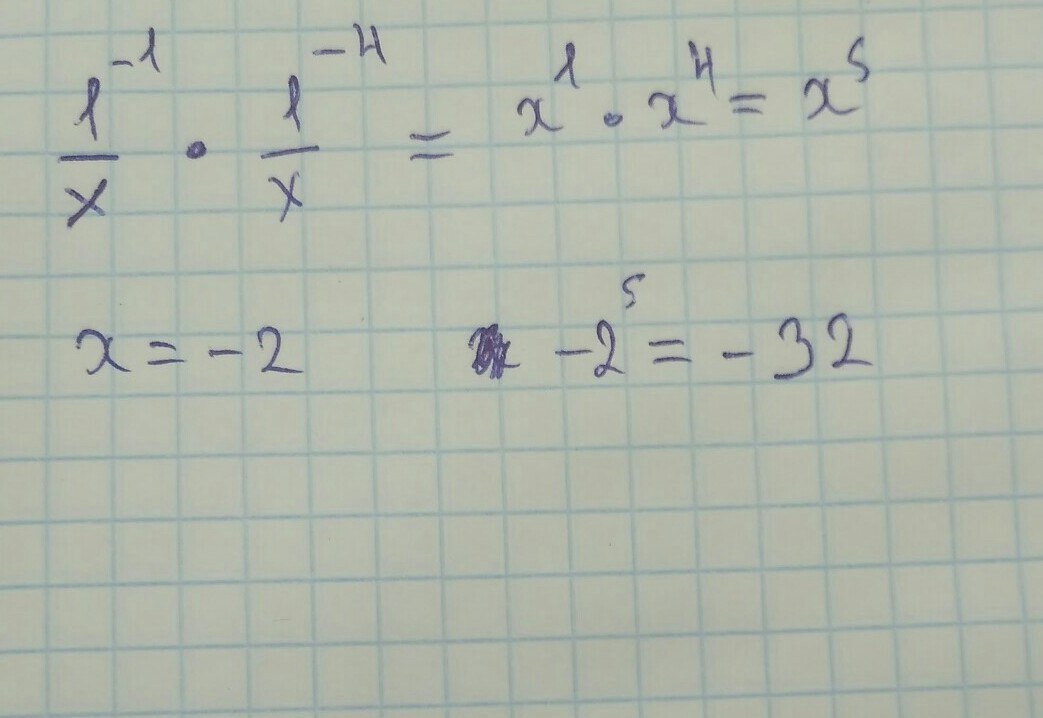 1⁻¹/x · 1⁻⁴/x = x¹ · x⁴ = x⁵
x = -2 -2⁵ = -32